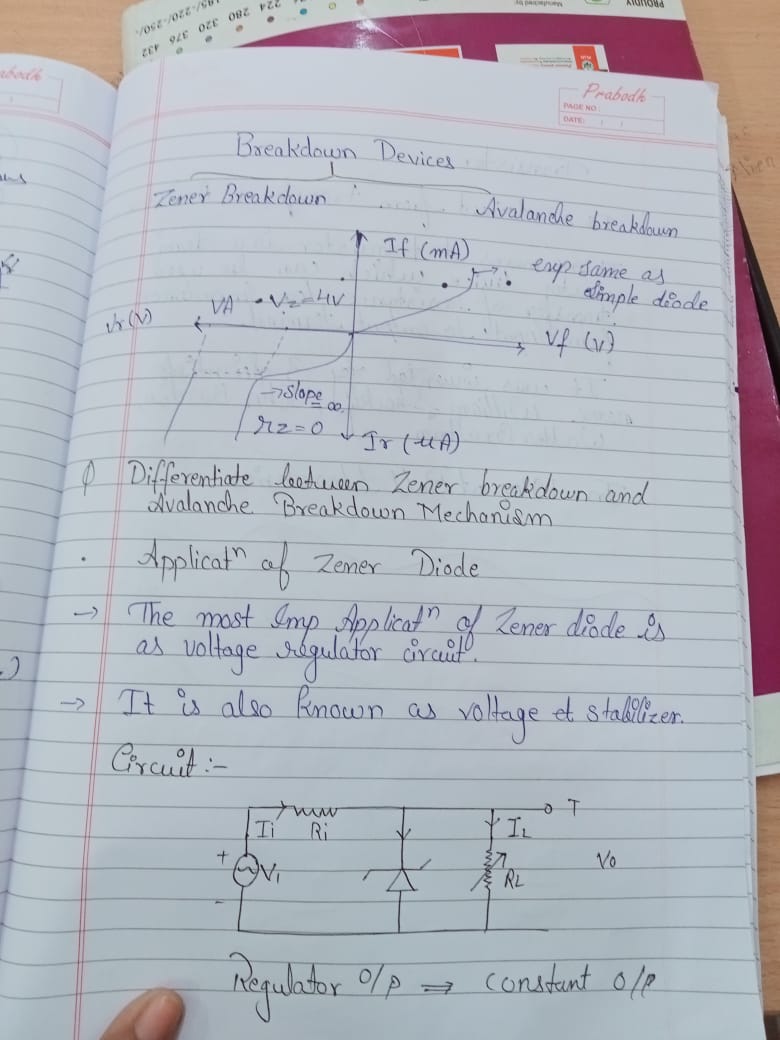 Prabodh
PAGE NO:
DATE:
Breakdown Devices
Zener Breakdown
Avalanche breakdown
If (mA)
exp same as
simple diode
VA
Vz=4V
Vr(V)
Vf (v)
→slope ∞
rz=0
Ir (μA)
Q Differentiate between Zener breakdown and
Avalanche Breakdown Mechanism
. Applicatⁿ of Zener Diode
→ The most Imp Applicatⁿ of Zener diode is
as voltage regulator circuit.
→ It is also known as voltage et stabilizer.
Circuit :-
Ii
Ri
T
IL
+
V1
-
RL
Vo
Regulator O/P ⇒ constant O/P